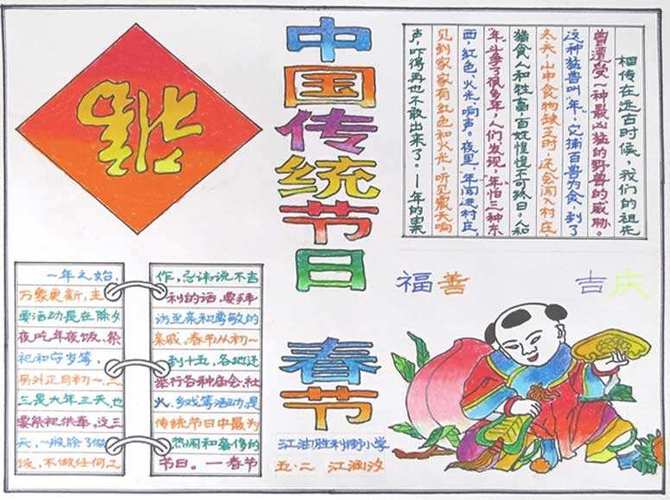 福
中国传统节日
春节
相传在远古时候,我们的祖先
曾遭受一种最凶猛的野兽的威胁。
这种猛兽叫“年”,它捕百兽为食,到了
冬天,山中食物缺乏时,还会闯入村庄
猎食人和牲畜,百姓惶惶不可终日。人和
“年”斗争了很多年,人们发现,年怕三种东
西,红色、火光、响声。夜里,年闯进村庄,
见到家家有红色和火光,听见震天响
声,吓得再也不敢出来了。—年的
一年之始,
万象更新,主
要活动是在除夕
夜吃年夜饭,祭
祀和守岁等,
另外正月初一、二、
三是大年三天,也
要祭祀供奉,这三
天,一般除了做
饭,不做任何工
作,忌讳说不吉
利的话,要拜
访至亲和尊敬的
亲戚。春节从初一
到十五,各地还
举行各种庙会,社
火,乡戏等活动是
传统节日中最为
热闹和的
节日。—春节
福善 吉庆
江油胜利街小学
五·二 江润汐